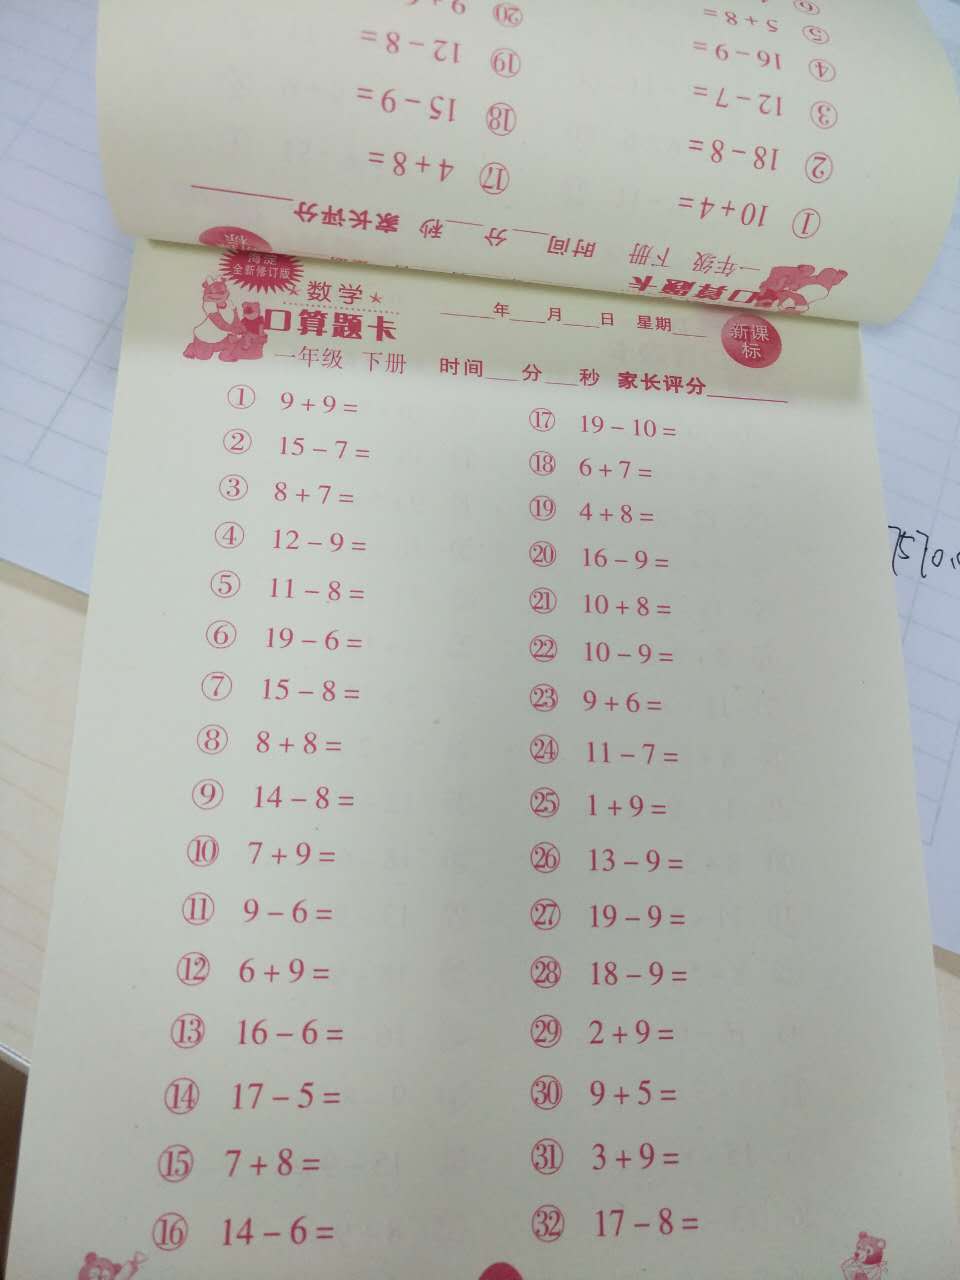 9+6
⑳
12-8=
⑲
15-9=
⑱
4+8=
⑰
⑥
5+8=
⑤
16-9=
④
12-7=
③
18-8=
②
10+4=
①
一年级 下册 时间___分___秒 家长评分______
口算题卡
全新修订版
数学
口算题卡
____年___月___日 星期___
新课标
一年级 下册 时间___分___秒 家长评分______
① 9+9=
② 15-7=
③ 8+7=
④ 12-9=
⑤ 11-8=
⑥ 19-6=
⑦ 15-8=
⑧ 8+8=
⑨ 14-8=
⑩ 7+9=
⑪ 9-6=
⑫ 6+9=
⑬ 16-6=
⑭ 17-5=
⑮ 7+8=
⑯ 14-6=
⑰ 19-10=
⑱ 6+7=
⑲ 4+8=
⑳ 16-9=
㉑ 10+8=
㉒ 10-9=
㉓ 9+6=
㉔ 11-7=
㉕ 1+9=
㉖ 13-9=
㉗ 19-9=
㉘ 18-9=
㉙ 2+9=
㉚ 9+5=
㉛ 3+9=
㉜ 17-8=